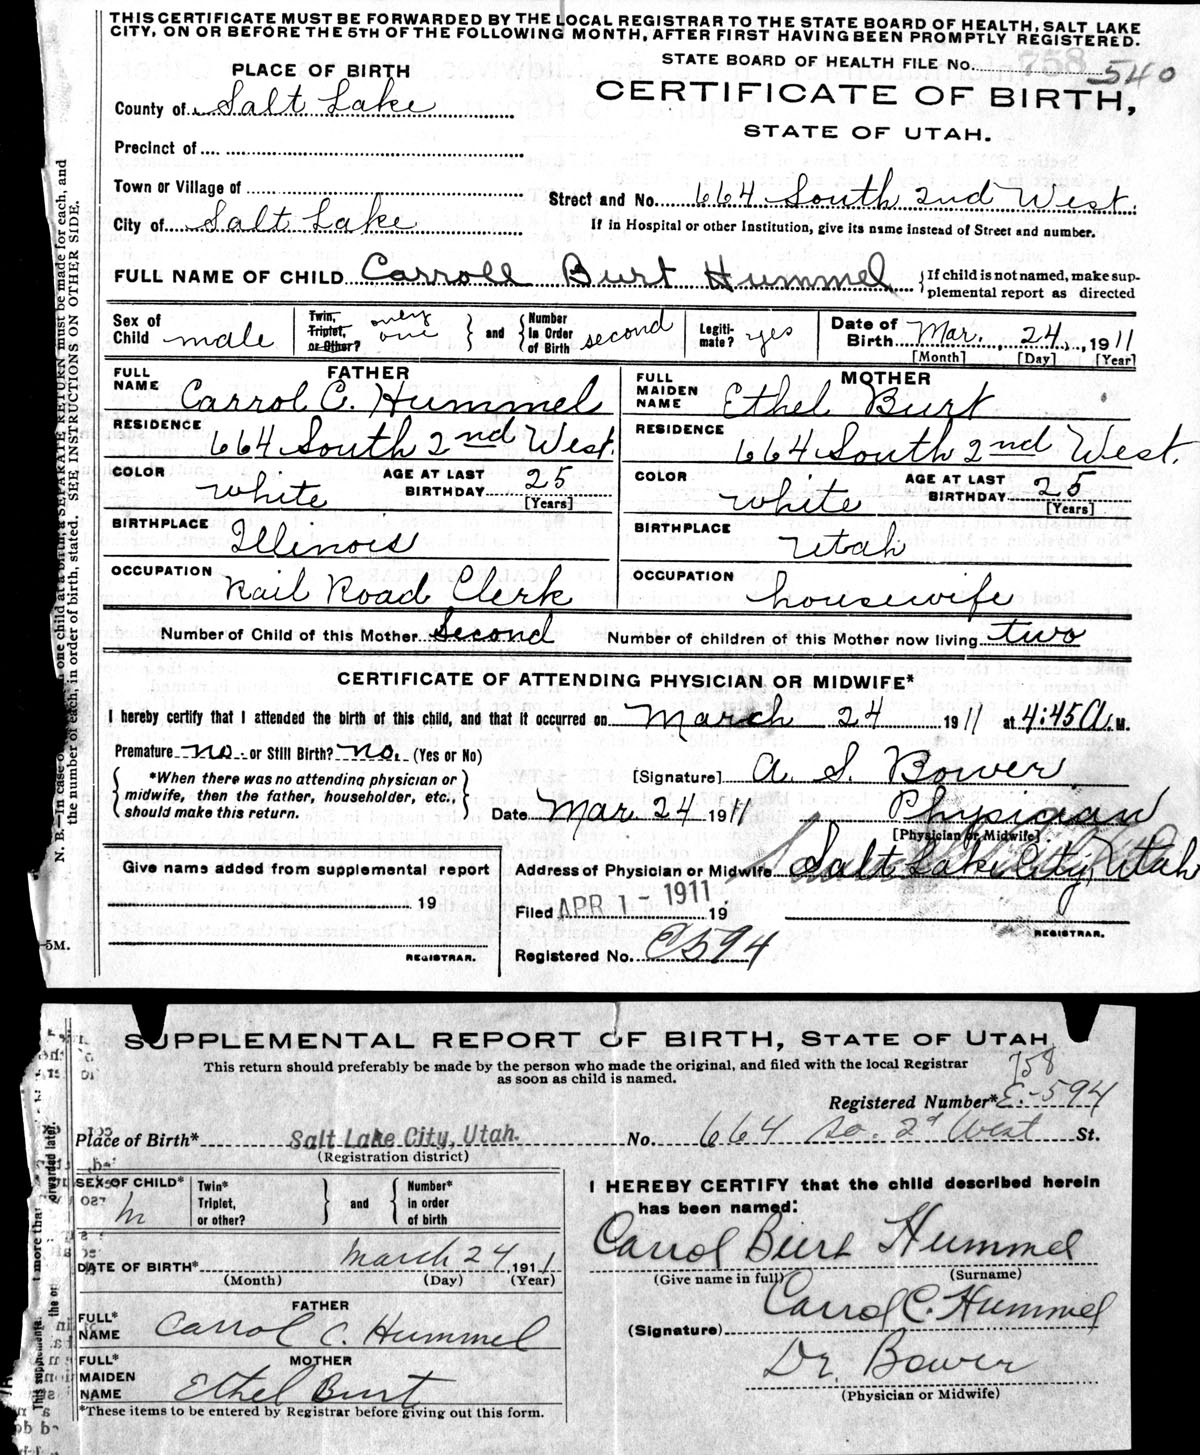 THIS CERTIFICATE MUST BE FORWARDED BY THE LOCAL REGISTRAR TO THE STATE BOARD OF HEALTH, SALT LAKE
CITY, ON OR BEFORE THE 5TH OF THE FOLLOWING MONTH, AFTER FIRST HAVING BEEN PROMPTLY REGISTERED.
STATE BOARD OF HEALTH FILE No. 758 540
PLACE OF BIRTH
CERTIFICATE OF BIRTH,
County of Salt Lake
STATE OF UTAH.
Precinct of
Town or Village of
Street and No. 664 South 2nd West.
City of Salt Lake
If in Hospital or other Institution, give its name instead of Street and number.
FULL NAME OF CHILD Carroll Burt Hummel { If child is not named, make sup-
plemental report as directed
Sex of Child male Twin, Triplet, or Other? only one } and { Number in Order of Birth second Legiti-mate? yes Date of Birth Mar. 24, 1911
[Month] [Day] [Year]
FATHER MOTHER
FULL NAME Carrol C. Hummel FULL MAIDEN NAME Ethel Burt
RESIDENCE 664 South 2nd West. RESIDENCE 664 South 2nd West.
COLOR white AGE AT LAST BIRTHDAY 25 [Years] COLOR white AGE AT LAST BIRTHDAY 25 [Years]
BIRTHPLACE Illinois BIRTHPLACE Utah
OCCUPATION Rail Road Clerk OCCUPATION housewife
Number of Child of this Mother Second Number of children of this Mother now living two
CERTIFICATE OF ATTENDING PHYSICIAN OR MIDWIFE*
I hereby certify that I attended the birth of this child, and that it occurred on March 24 1911 at 4:45 A. M.
Premature no. or Still Birth? no. (Yes or No)
[Signature] A. S. Bower
{ *When there was no attending physician or
midwife, then the father, householder, etc.,
should make this return. }
Date Mar 24 1911 Physician
[Physician or Midwife]
Address of Physician or Midwife Salt Lake City, Utah
Give name added from supplemental report
19
REGISTRAR.
Filed APR 1 - 1911 19
REGISTRAR.
Registered No. E594
N. B.—In case of one child at a birth, a SEPARATE RETURN must be made for each, and
the number of each, in order of birth, stated. SEE INSTRUCTIONS ON OTHER SIDE.
5M.
SUPPLEMENTAL REPORT OF BIRTH, STATE OF UTAH
This return should preferably be made by the person who made the original, and filed with the local Registrar
as soon as child is named.
758
Registered Number* E.-594
Place of Birth* Salt Lake City, Utah. No. 664 So. 2d West St.
(Registration district)
SEX OF CHILD* m Twin* Triplet, or other? } and { Number* in order of birth
I HEREBY CERTIFY that the child described herein
has been named:
Carrol Burt Hummel
(Give name in full) (Surname)
DATE OF BIRTH* March 24, 1911
(Month) (Day) (Year)
FATHER
FULL* NAME Carrol C. Hummel
(Signature) Carrol C. Hummel
MOTHER
FULL* MAIDEN NAME Ethel Burt
Dr. Bower
(Physician or Midwife)
*These items to be entered by Registrar before giving out this form.